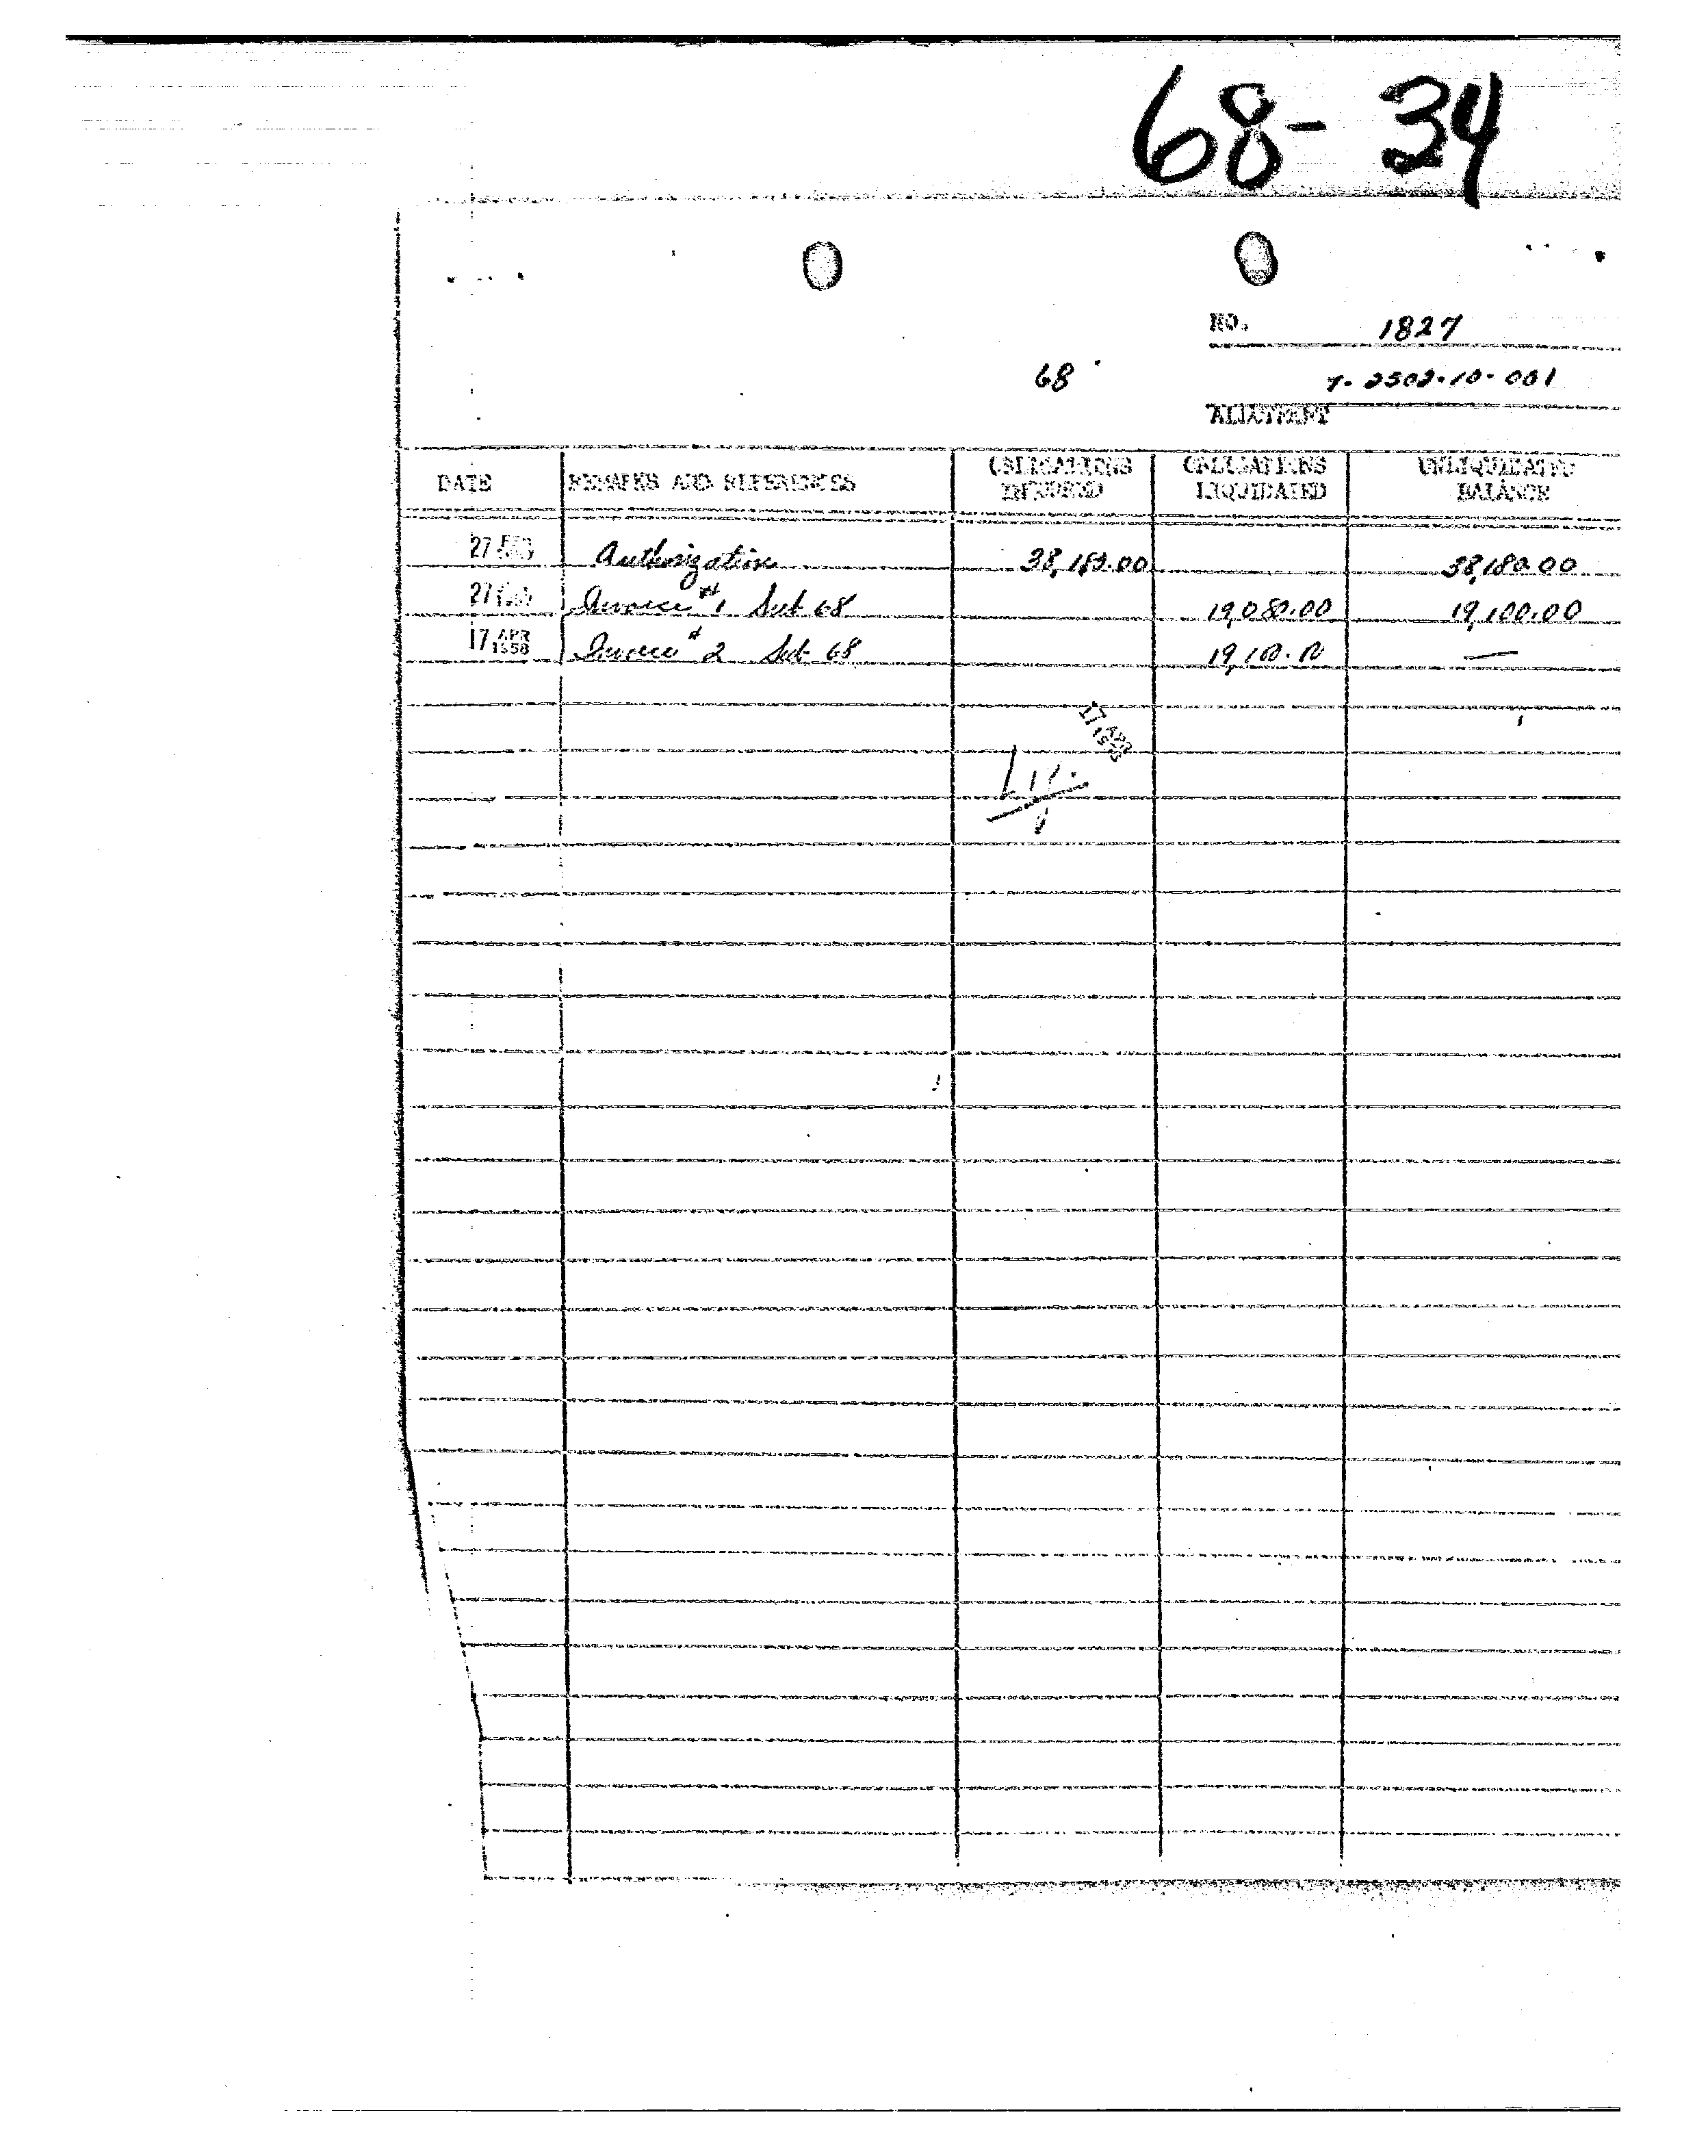 68-34
NO. 1827
68
7-2502-10-001
ALLOTMENT
DATE REMARKS AND REFERENCES OBLIGATIONS INCURRED OBLIGATIONS LIQUIDATED UNLIQUIDATED BALANCE
27 FEB Authorization 38,180.00 38,180.00
27 Invoice #1 Sub 68 19,080.00 19,100.00
17 APR 1958 Invoice #2 Sub 68 19,100.00 —
17 APR 1958